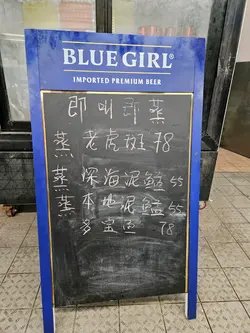 BLUE GIRL®
IMPORTED PREMIUM BEER
即叫即蒸
蒸 老虎斑 78
蒸 深海泥鯭 55
蒸 本地泥鯭 55
多宝鱼 78